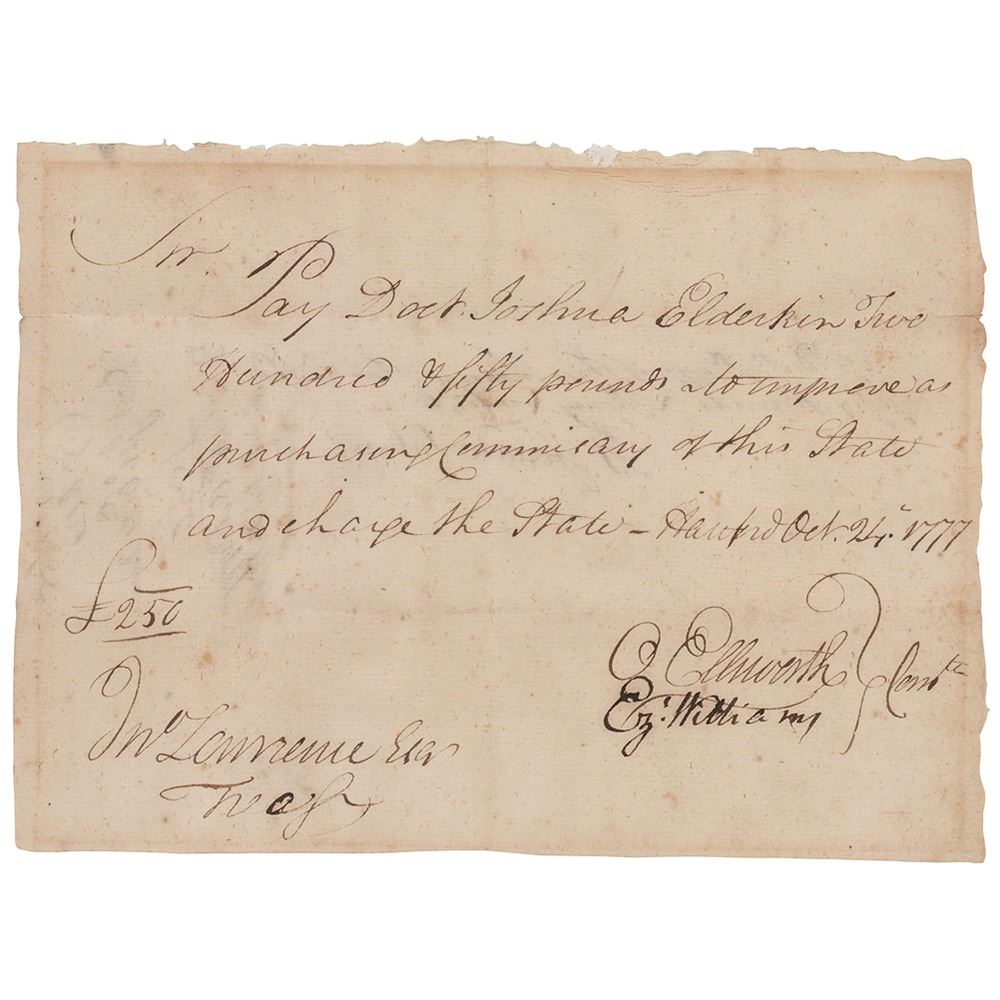 Sir.
Pay Doct. Joshua Elderkin Two
Hundred & fifty pounds to improve as
purchasing Commisary of this State
and charge the State – Hartford Oct. 24. 1777
£250
O Ellsworth
Ez. Williams
Comtee
Jno Lawrence Esqr
Treasr